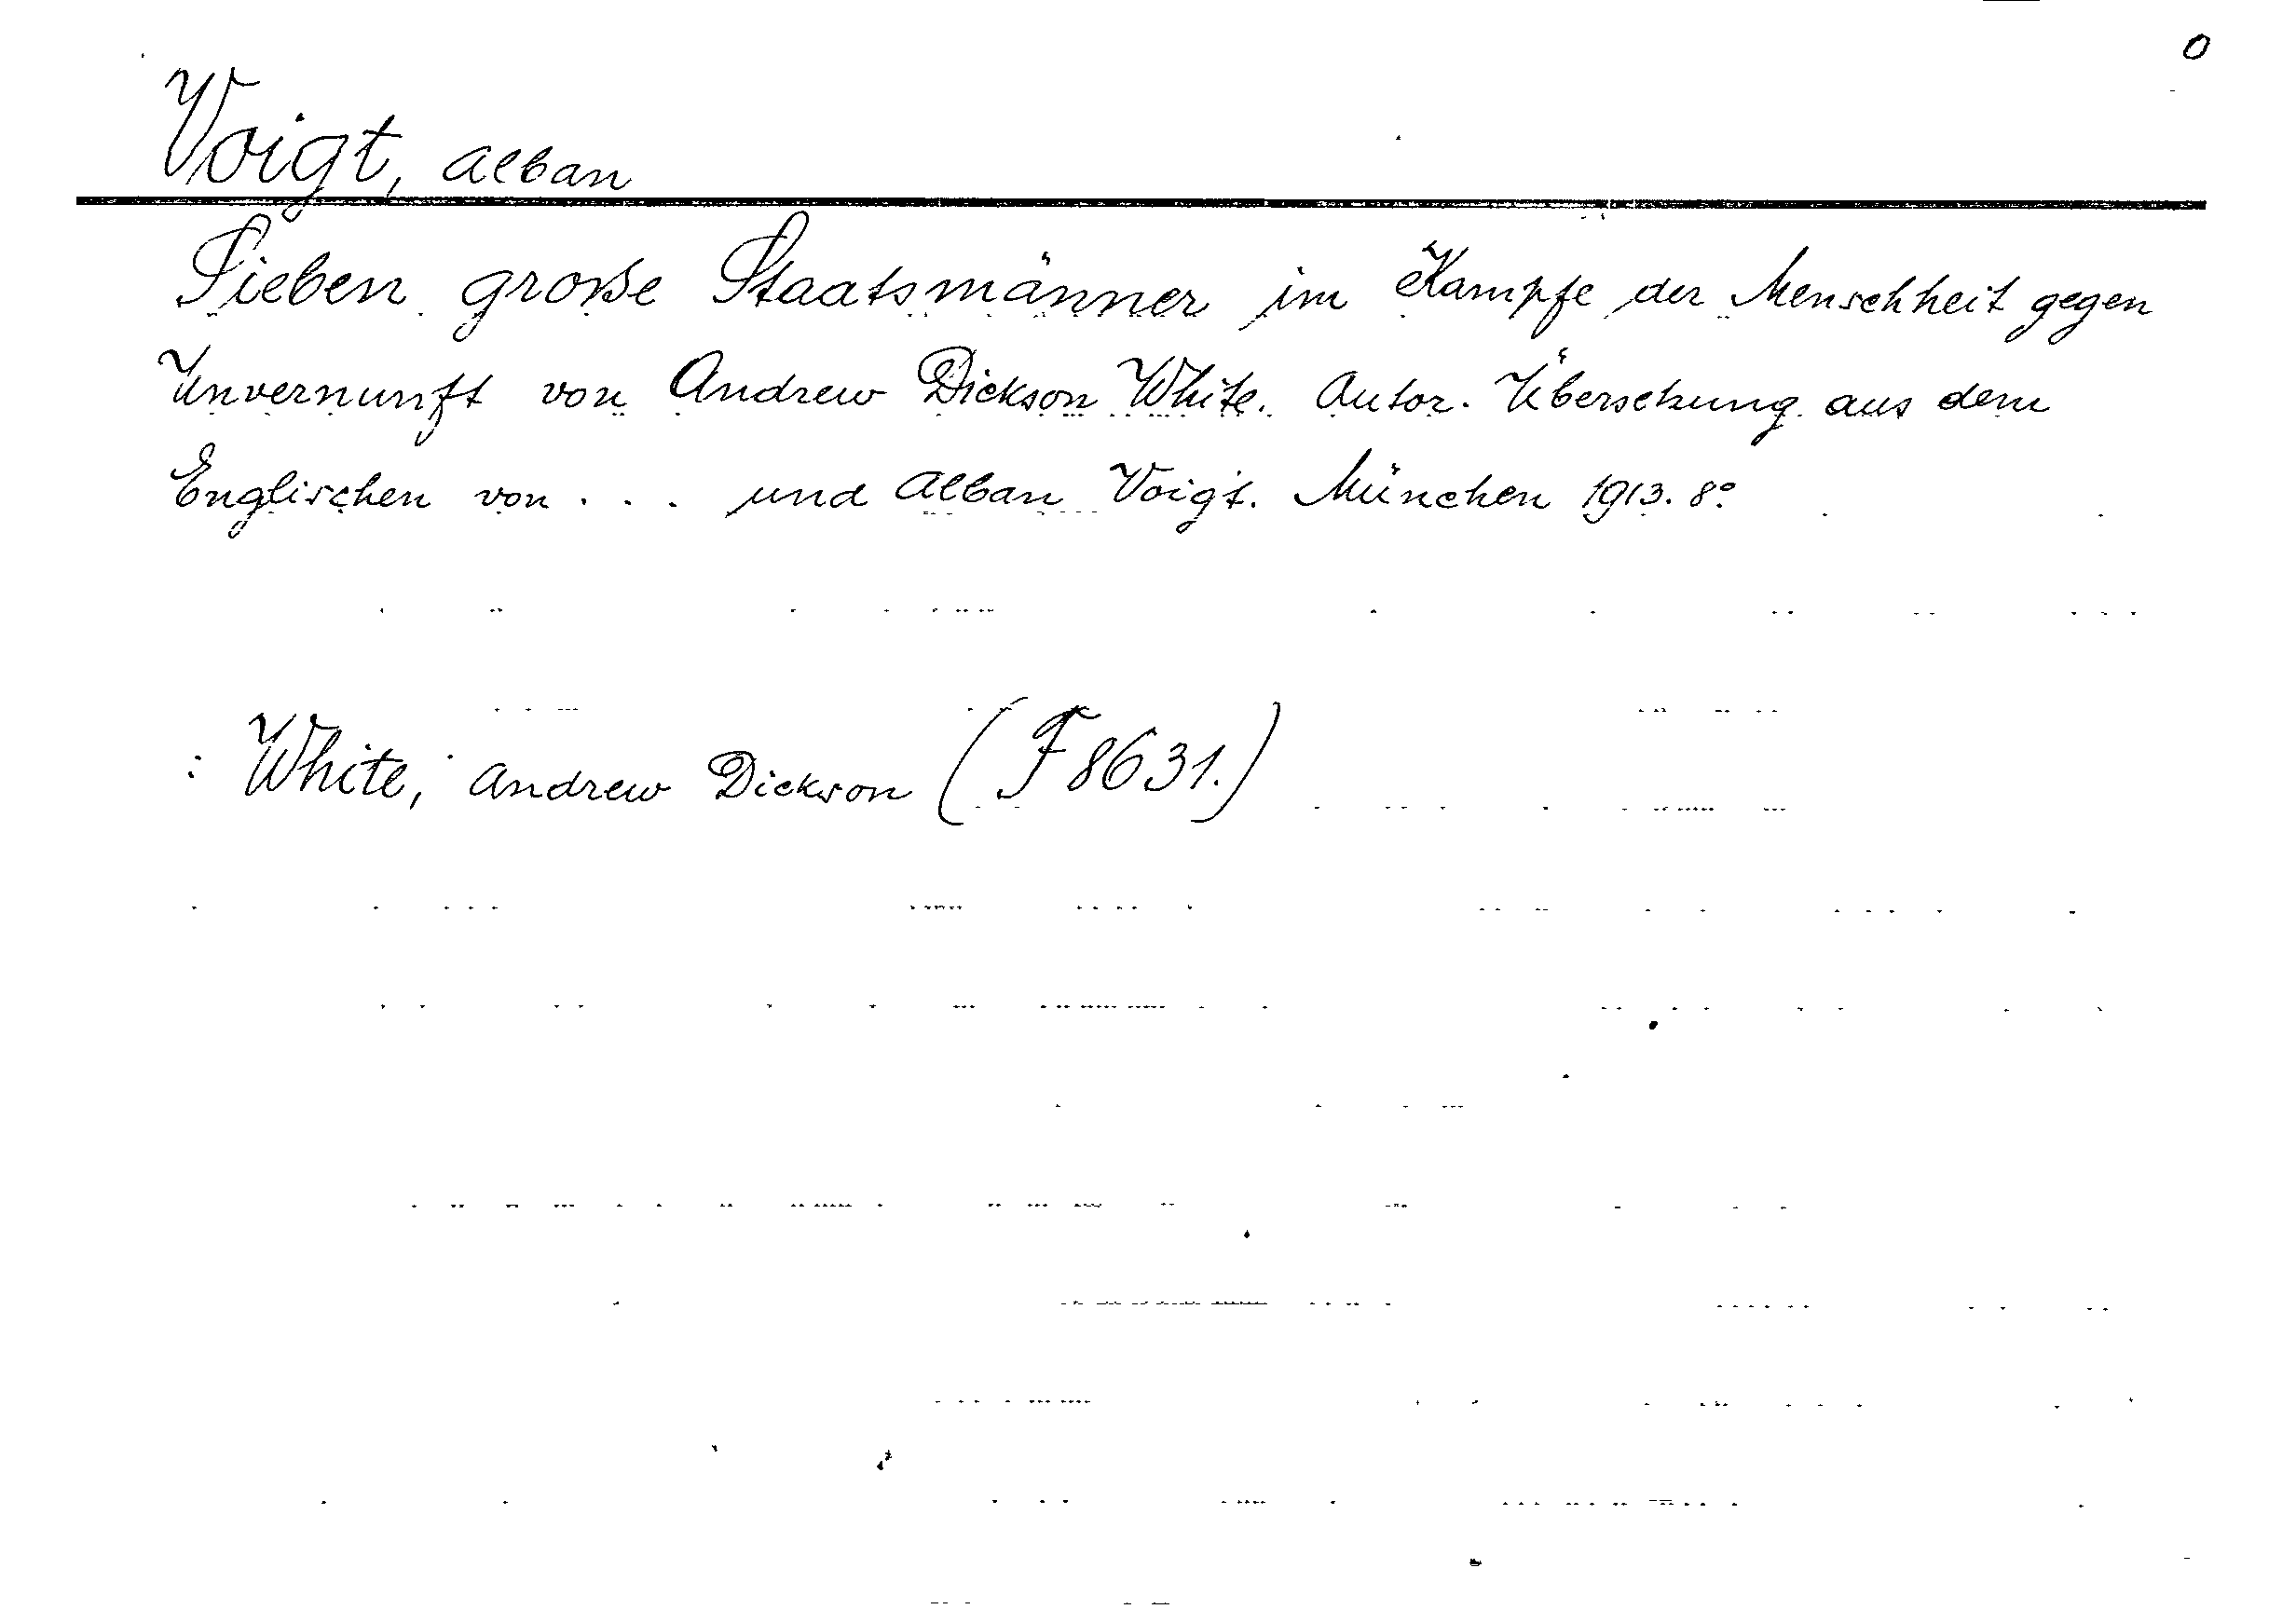 0
Voigt, Alban
Sieben große Staatsmänner im Kampfe der Menschheit gegen
Unvernunft von Andrew Dickson White. Autor. Übersetzung aus dem
Englischen von . . . und Alban Voigt. München 1913. 8°
: White, Andrew Dickson (F 8631.)